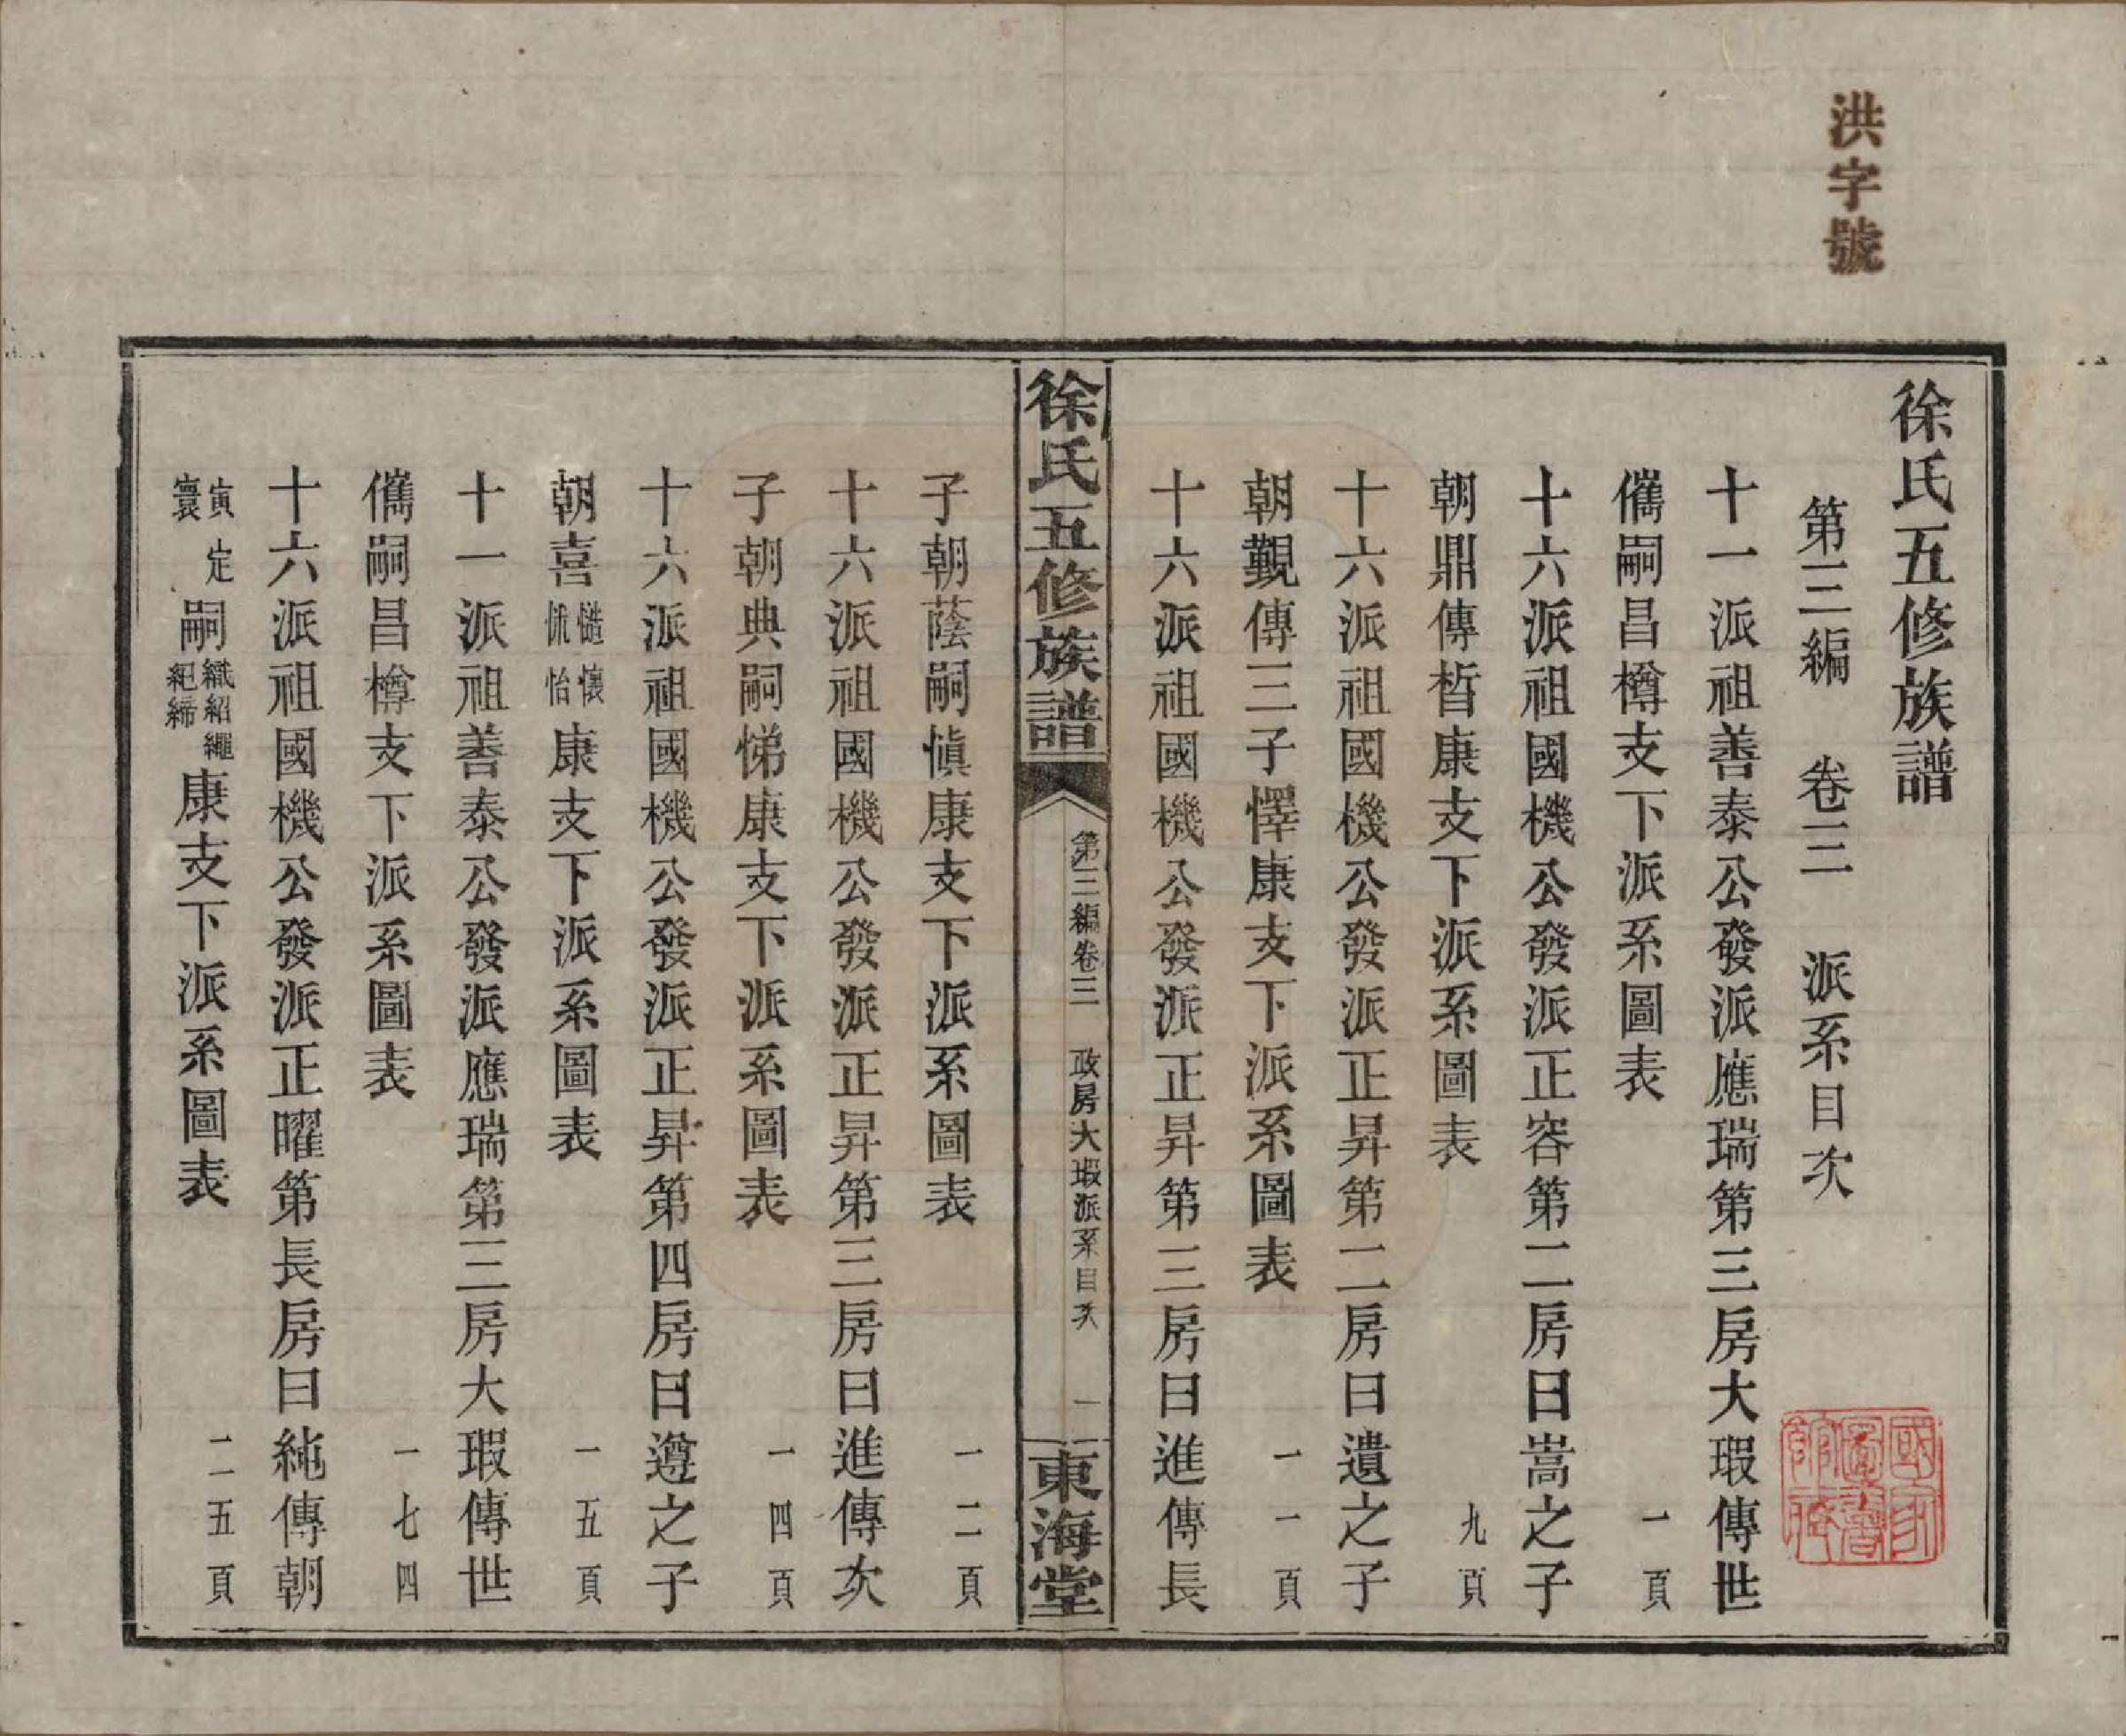 洪字號
徐氏五修族譜
第三編　卷三　派系目次
十一派祖善泰公發派應瑞第三房大瑕傳世
儁嗣昌樽支下派系圖表　一頁
十六派祖國機公發派正容第二房曰嵩之子
朝鼎傳晳康支下派系圖表　九頁
十六派祖國機公發派正昇第二房曰遺之子
朝觀傳三子懌康支下派系圖表　一一頁
十六派祖國機公發派正昇第三房曰進傳長
徐氏五修族譜　第三編卷三　政房大瑕派系目次　一　東海堂
子朝蔭嗣愼康支下派系圖表　一二頁
十六派祖國機公發派正昇第三房曰進傳次
子朝典嗣悌康支下派系圖表　一四頁
十六派祖國機公發派正昇第四房曰遵之子
朝喜懷怡康支下派系圖表　一五頁
十一派祖善泰公發派應瑞第三房大瑕傳世
儁嗣昌樽支下派系圖表　一七四
十六派祖國機公發派正曜第長房曰純傳朝
寅定寰嗣織紹繩紀締康支下派系圖表　二五頁
國家圖書館藏